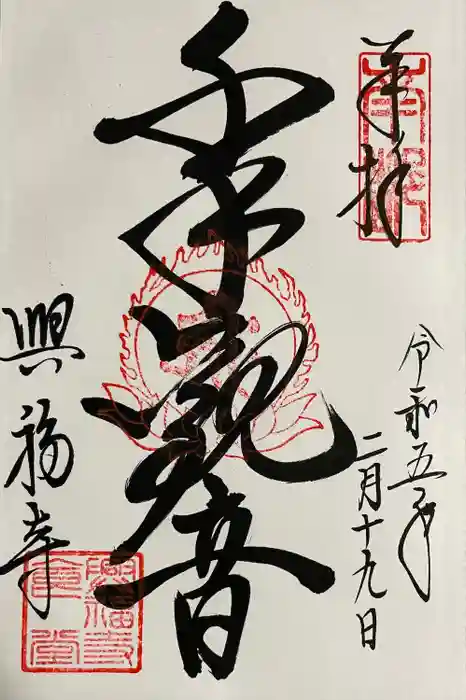 奉拝
令和五年
二月十九日
千手観音
興福寺
南円
興福寺
食堂